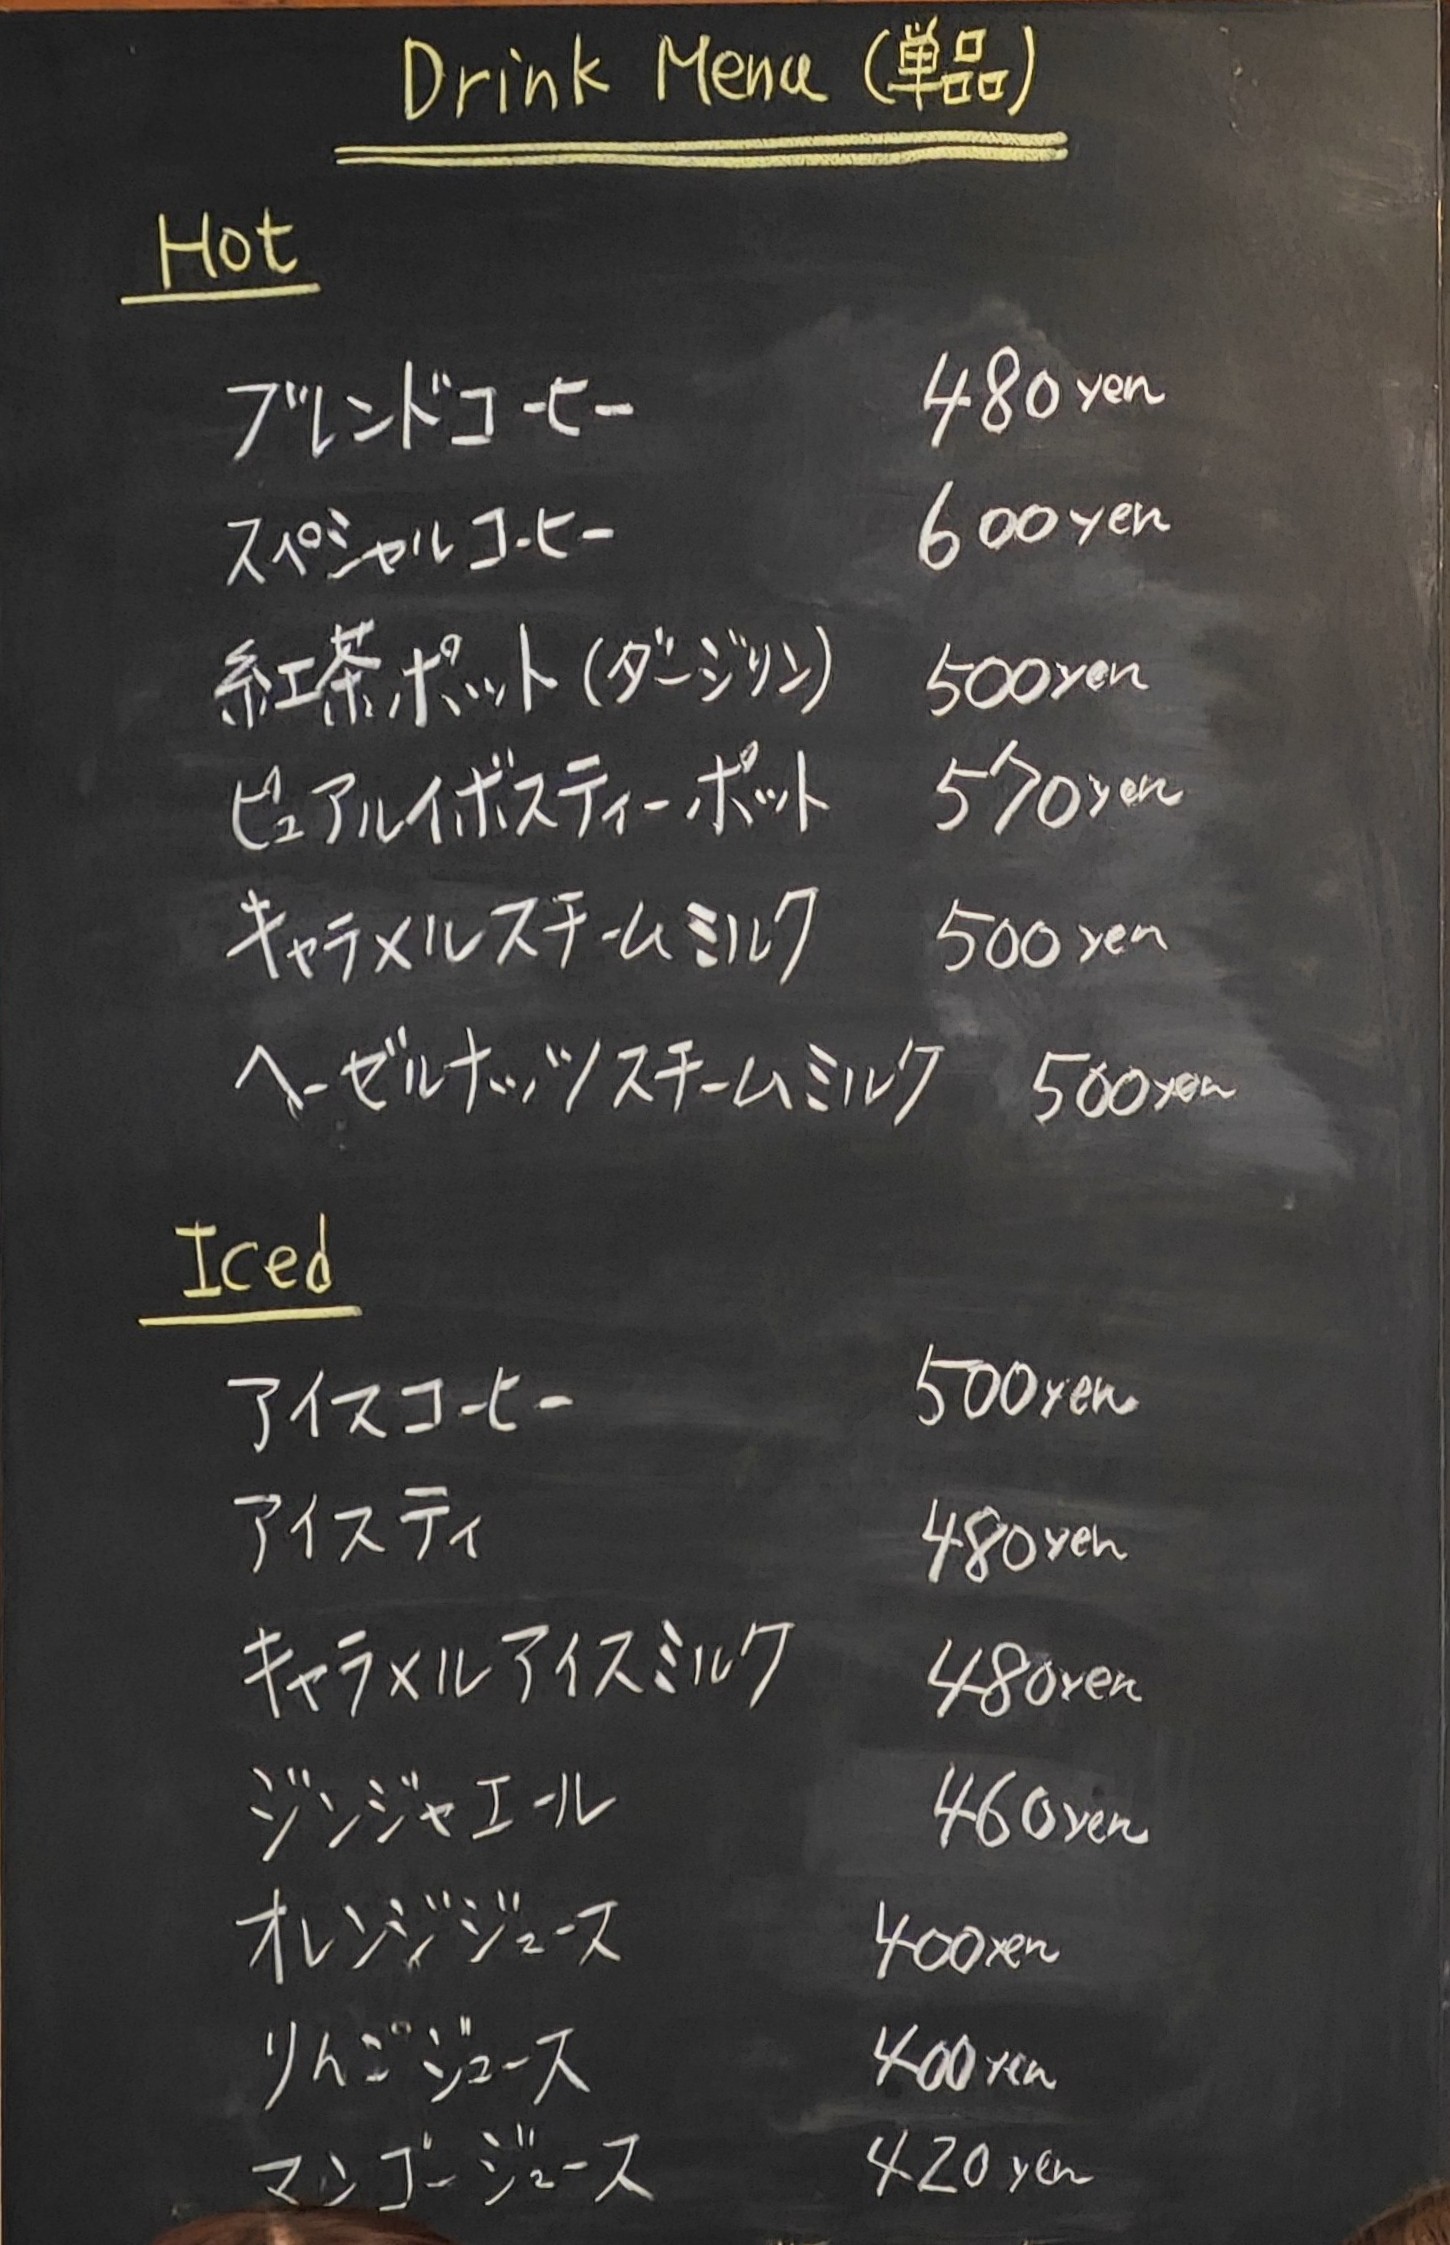 Drink Menu (単品)
Hot
ブレンドコーヒー 480yen
スペシャルコーヒー 600yen
紅茶ポット(ダージリン) 500yen
ピュアルイボスティーポット 570yen
キャラメルスチームミルク 500yen
ヘーゼルナッツスチームミルク 500yen
Iced
アイスコーヒー 500yen
アイスティ 480yen
キャラメルアイスミルク 480yen
ジンジャエール 460yen
オレンジジュース 400yen
りんごジュース 400yen
マンゴージュース 420yen